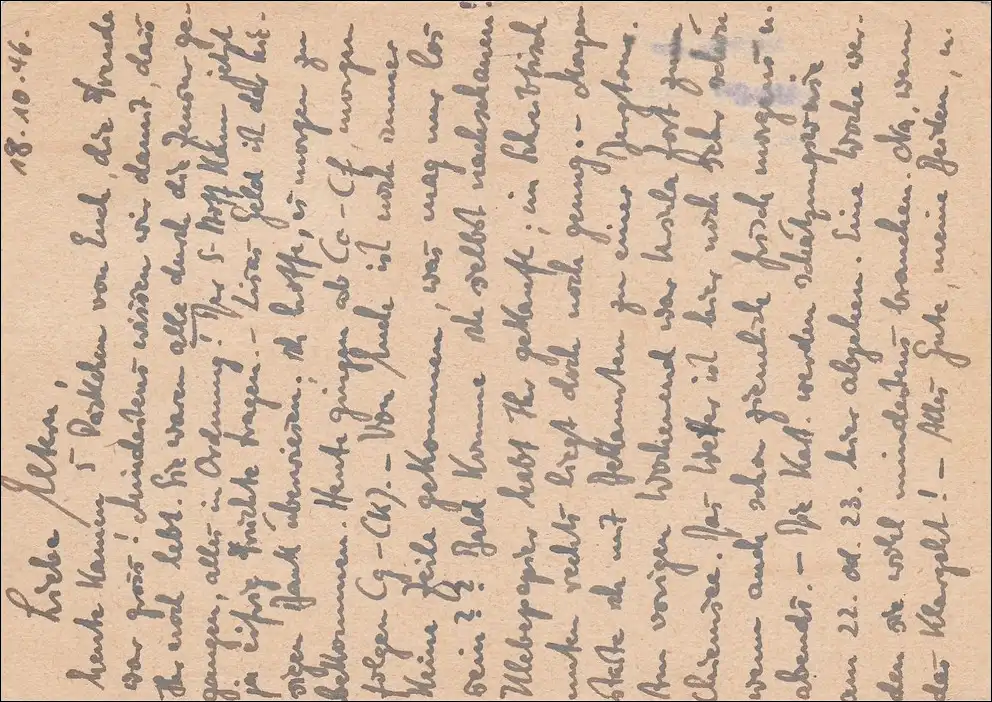 18.10.46.
Liebe Eltern!
heute kamen 5 Päckchen von Euch, die Freude
war gross! Mindestens wissen wir damit, dass
Ihr noch lebt. Sie waren alle durch die Zensur ge-
gangen, alles in Ordnung! Der 5 Mark Klein jetzt
ja eifrig Früchte tragen. – Liesas Geld ist auf hie-
siger Bank überwiesen; ich hoffe, es morgen zu
bekommen. Heute gingen ab Ca-Cf, morgen
folgen Cg-Ck). – Von Euch ist noch immer
kein Zeile gekommen, was mag nur los
sein?? Bald komme ich selbst nachschauen!
Klebepapier habt Ihr gekauft; im Schreibtisch
unten rechts liegt doch noch genug. – Morgen
starte ich mit Bekannten zu einer Bergtour.
Am vorigen Wochenend war Ursula fort zum
Chiemsee. Das Wetter ist hier noch sehr schön
wenn auch schon ziemlich frisch morgens u.
abends. – Die Kat. werden schätzungsweise
am 22. od. 23. hier abgehen. Eine Woche wer-
den sie wohl mindestens brauchen. Na, wenn
das klargeht! – Alles Gute, meine Besten, u.